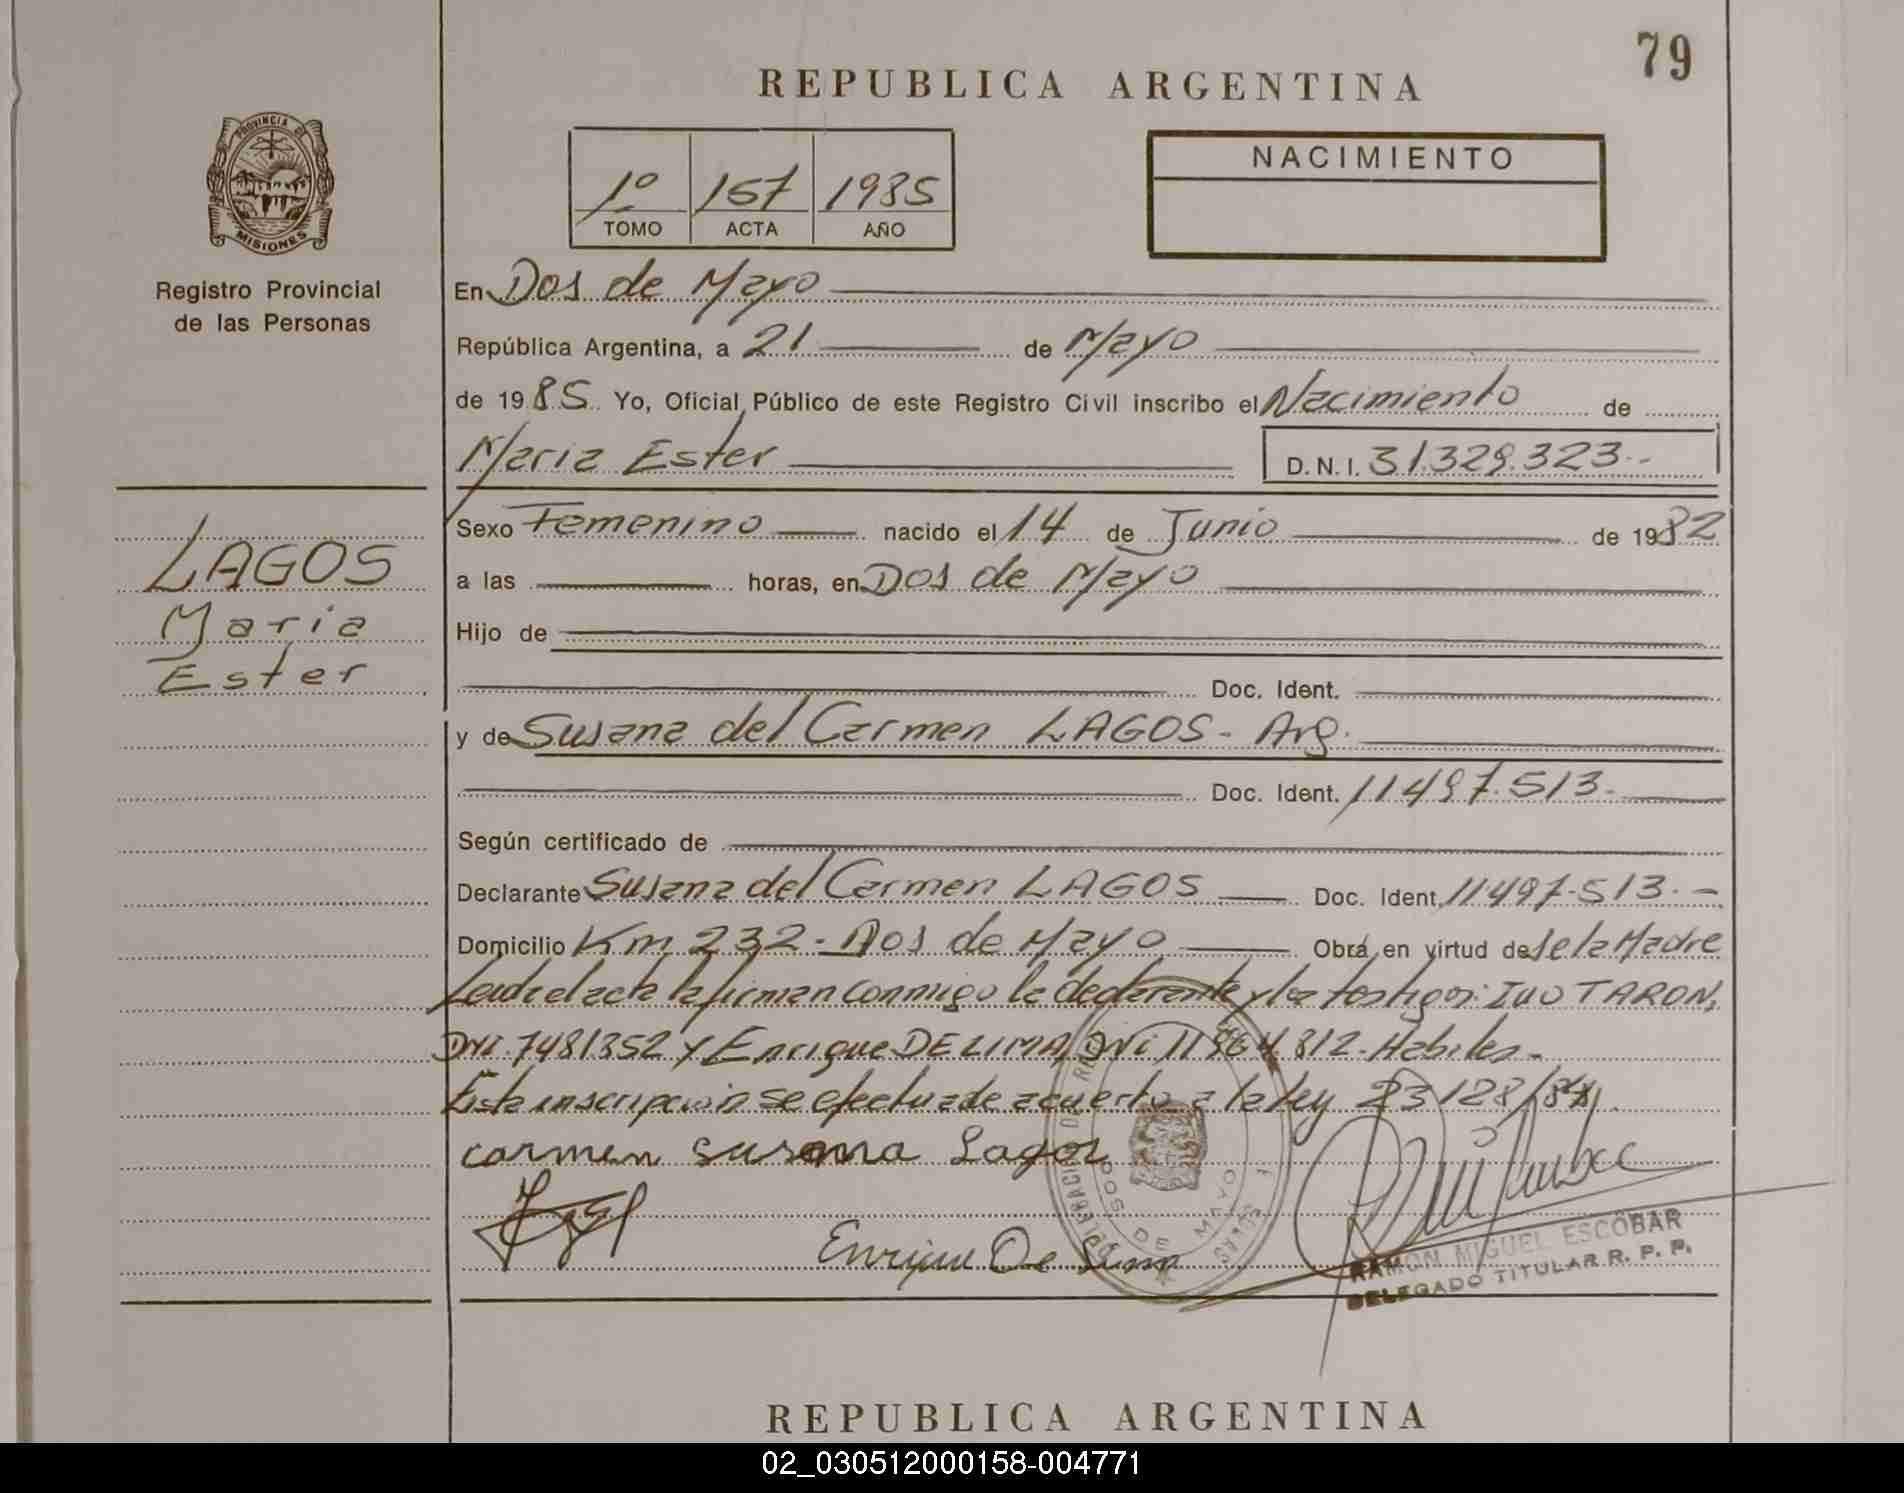 79
REPUBLICA ARGENTINA
PROVINCIA DE
MISIONES
Registro Provincial
de las Personas
1º 157 1985
TOMO ACTA AÑO
NACIMIENTO
En Dos de Mayo
República Argentina, a 21 de Mayo
de 1985 Yo, Oficial Público de este Registro Civil inscribo el Nacimiento de
Maria Ester D.N.I. 31.329.323.-
LAGOS
Maria
Ester
Sexo Femenino nacido el 14 de Junio de 1982
a las horas, en Dos de Mayo
Hijo de
Doc. Ident.
y de Susana del Carmen LAGOS - Arg.
Doc. Ident. 11497.513.-
Según certificado de
Declarante Susana del Carmen LAGOS Doc. Ident. 11.497.513.-
Domicilio Km 232 - Dos de Mayo Obra en virtud de se la Madre
Leida el acta la firman conmigo la declarante y los testigos: Ivo TARON,
DNI. 7481352 y Enrique DE LIMA, DNI 11864.812. Habiles.-
Esta inscripcion se efectua de acuerdo a la ley 23128/84.
carmen susana Lagos
Enrique De Lima
DOS DE MAYO
RAMON MIGUEL ESCOBAR
DELEGADO TITULAR R. P. P.
REPUBLICA ARGENTINA
02_030512000158-004771